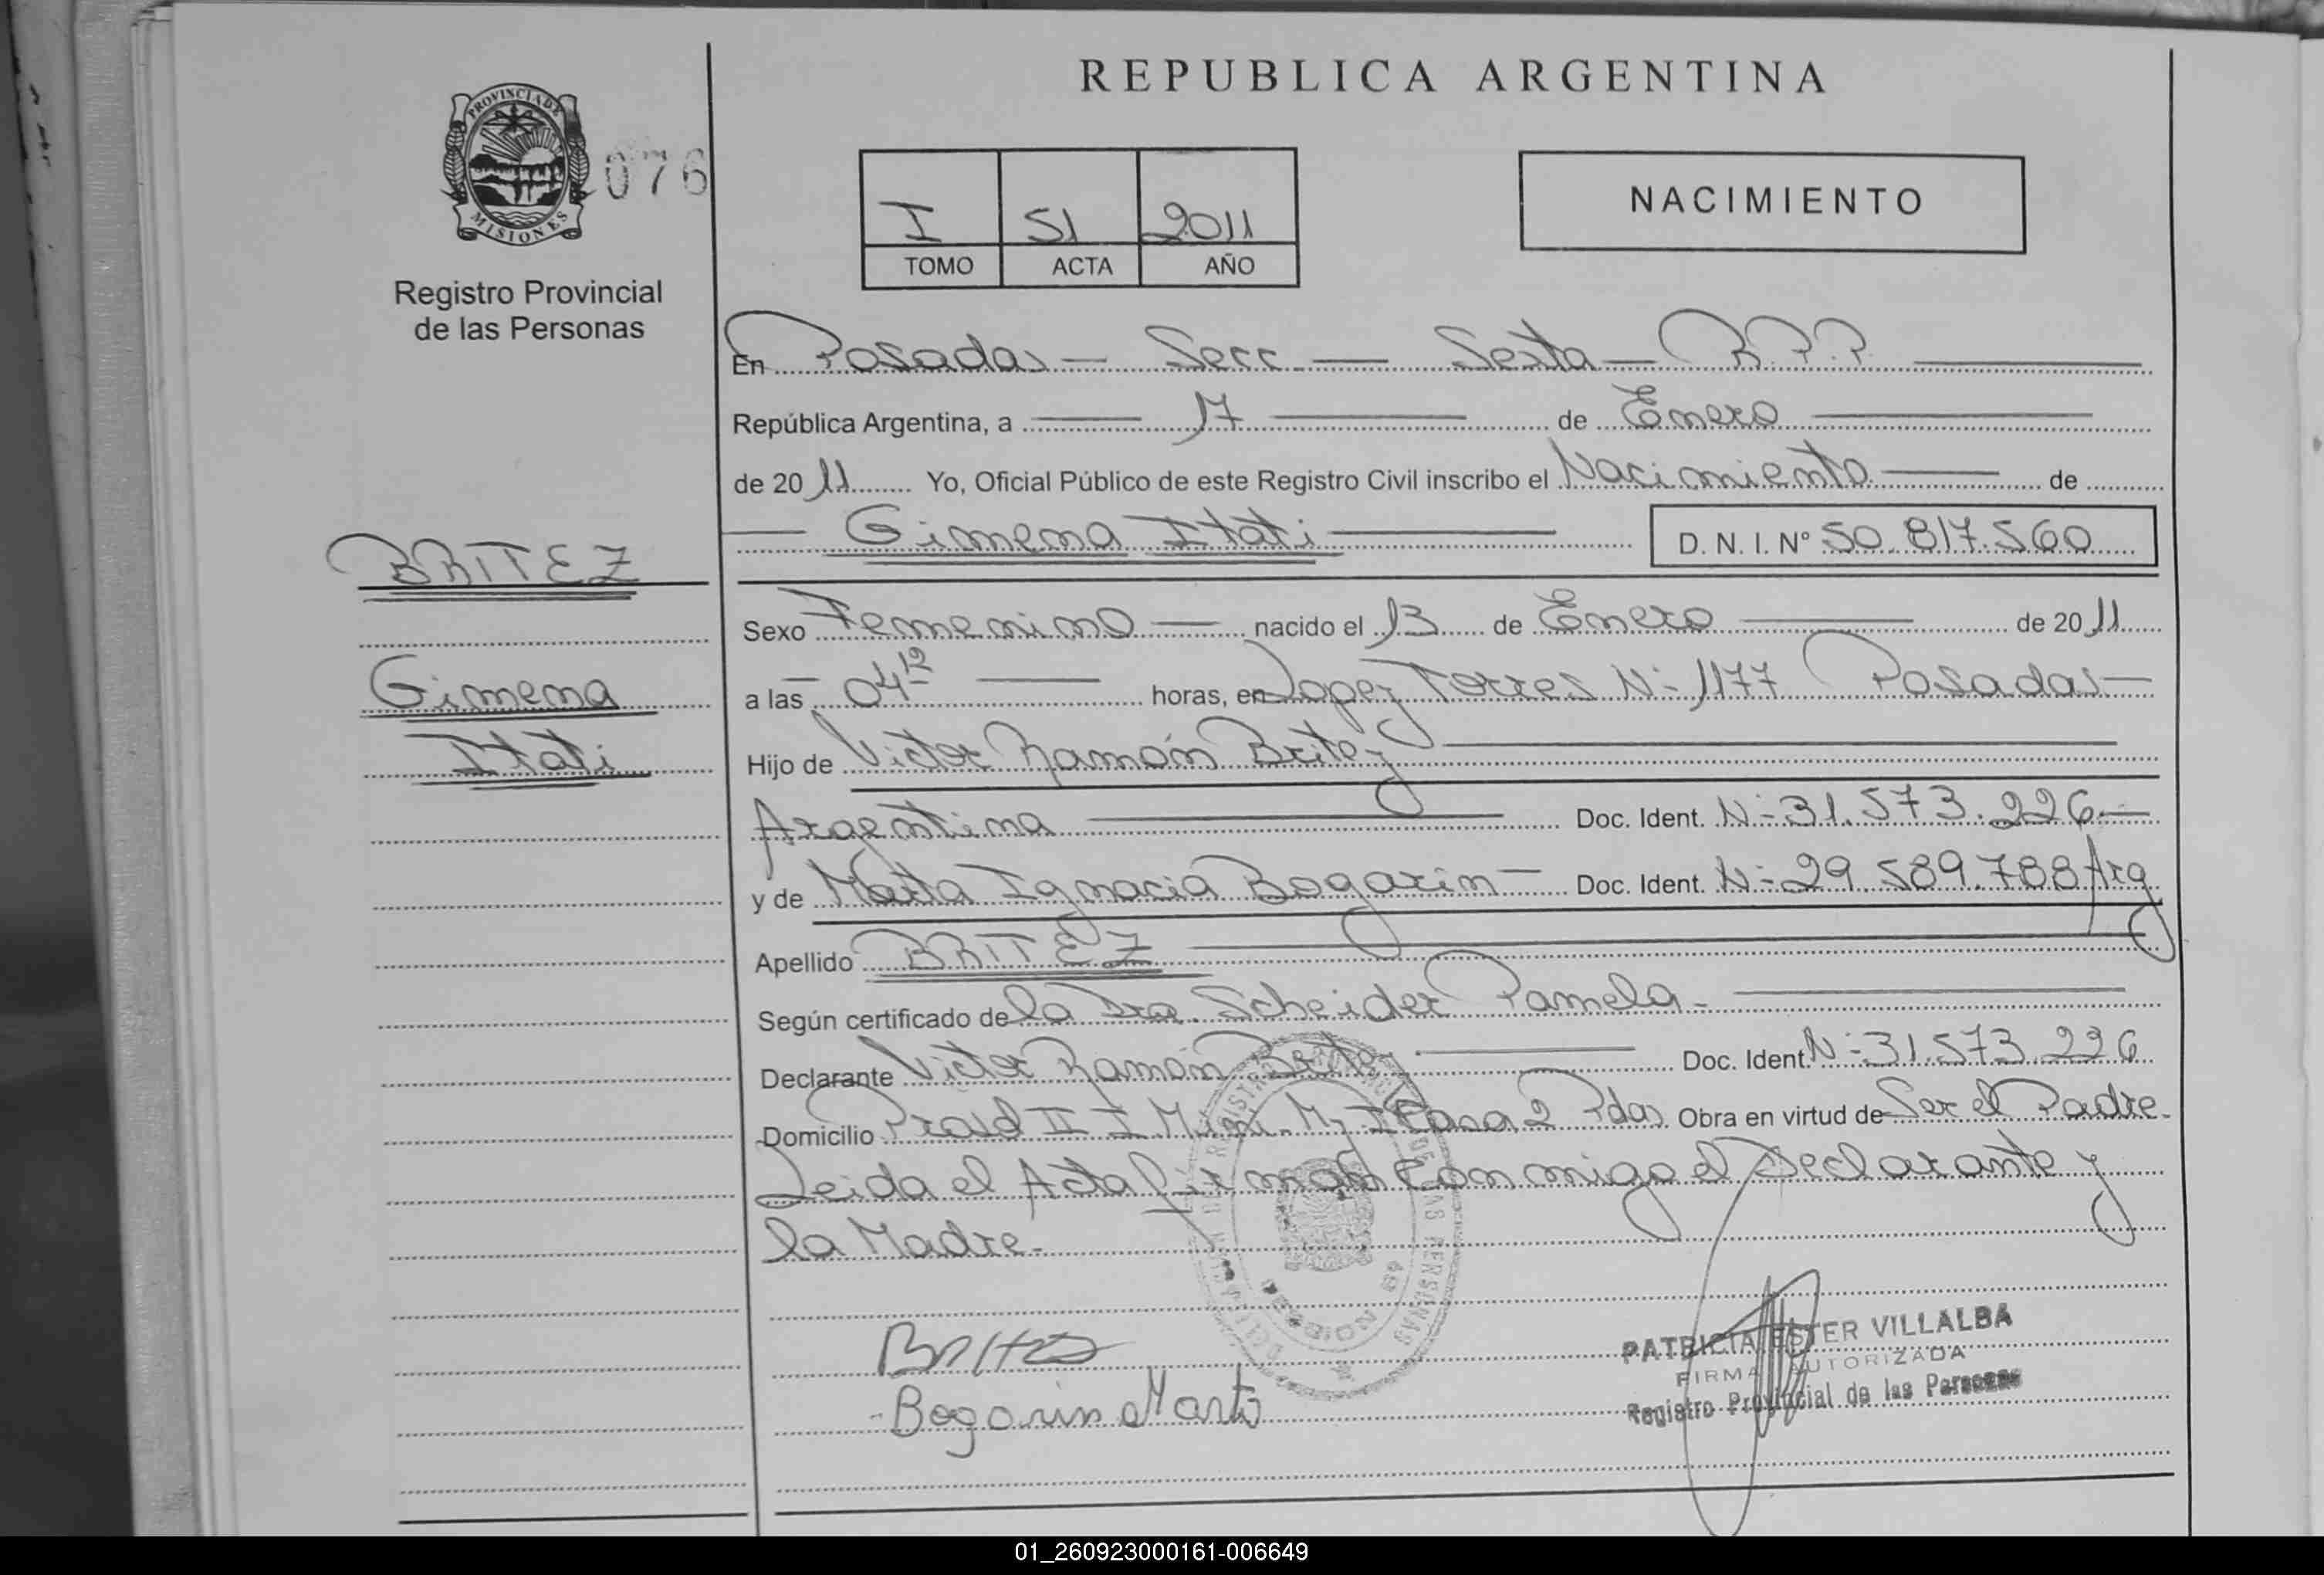 REPUBLICA ARGENTINA
PROVINCIA DE
MISIONES
076
Registro Provincial
de las Personas
I 51 2011
TOMO ACTA AÑO
NACIMIENTO
En Posadas — Secc — Sexta — R.P.P.
República Argentina, a 17 de Enero
de 2011 Yo, Oficial Público de este Registro Civil inscribo el Nacimiento de
Gimena Itati D. N. I. Nº 50.817.560
BRITEZ
Gimena
Itati
Sexo Femenino nacido el 13 de Enero de 2011
a las 04 12 horas, en Lopez Torres Nº 1177 Posadas
Hijo de Victor Ramón Britez
Argentina Doc. Ident. Nº 31.573.226
y de Marta Ignacia Bogarin Doc. Ident. Nº 29.589.788 Arg
Apellido BRITEZ
Según certificado de la Dra. Scheider Pamela
Declarante Victor Ramón Britez Doc. Ident. Nº 31.573.226
Domicilio II I Casa 2 Pdas. Obra en virtud de Ser el Padre
Leida el Acta firman conmigo el Declarante y
la Madre.
Britez
Bogarin Marta
PATRICIA ESTER VILLALBA
FIRMA AUTORIZADA
Registro Provincial de las Personas
01_260923000161-006649